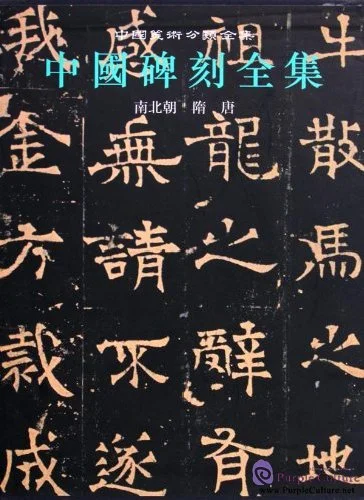 中國美術分類全集
中國碑刻全集
南北朝 隋 唐
牛散馬之地
祖龍之辭有
感無請不遂
我金方裁成
PurpleCulture
www.PurpleCulture.net